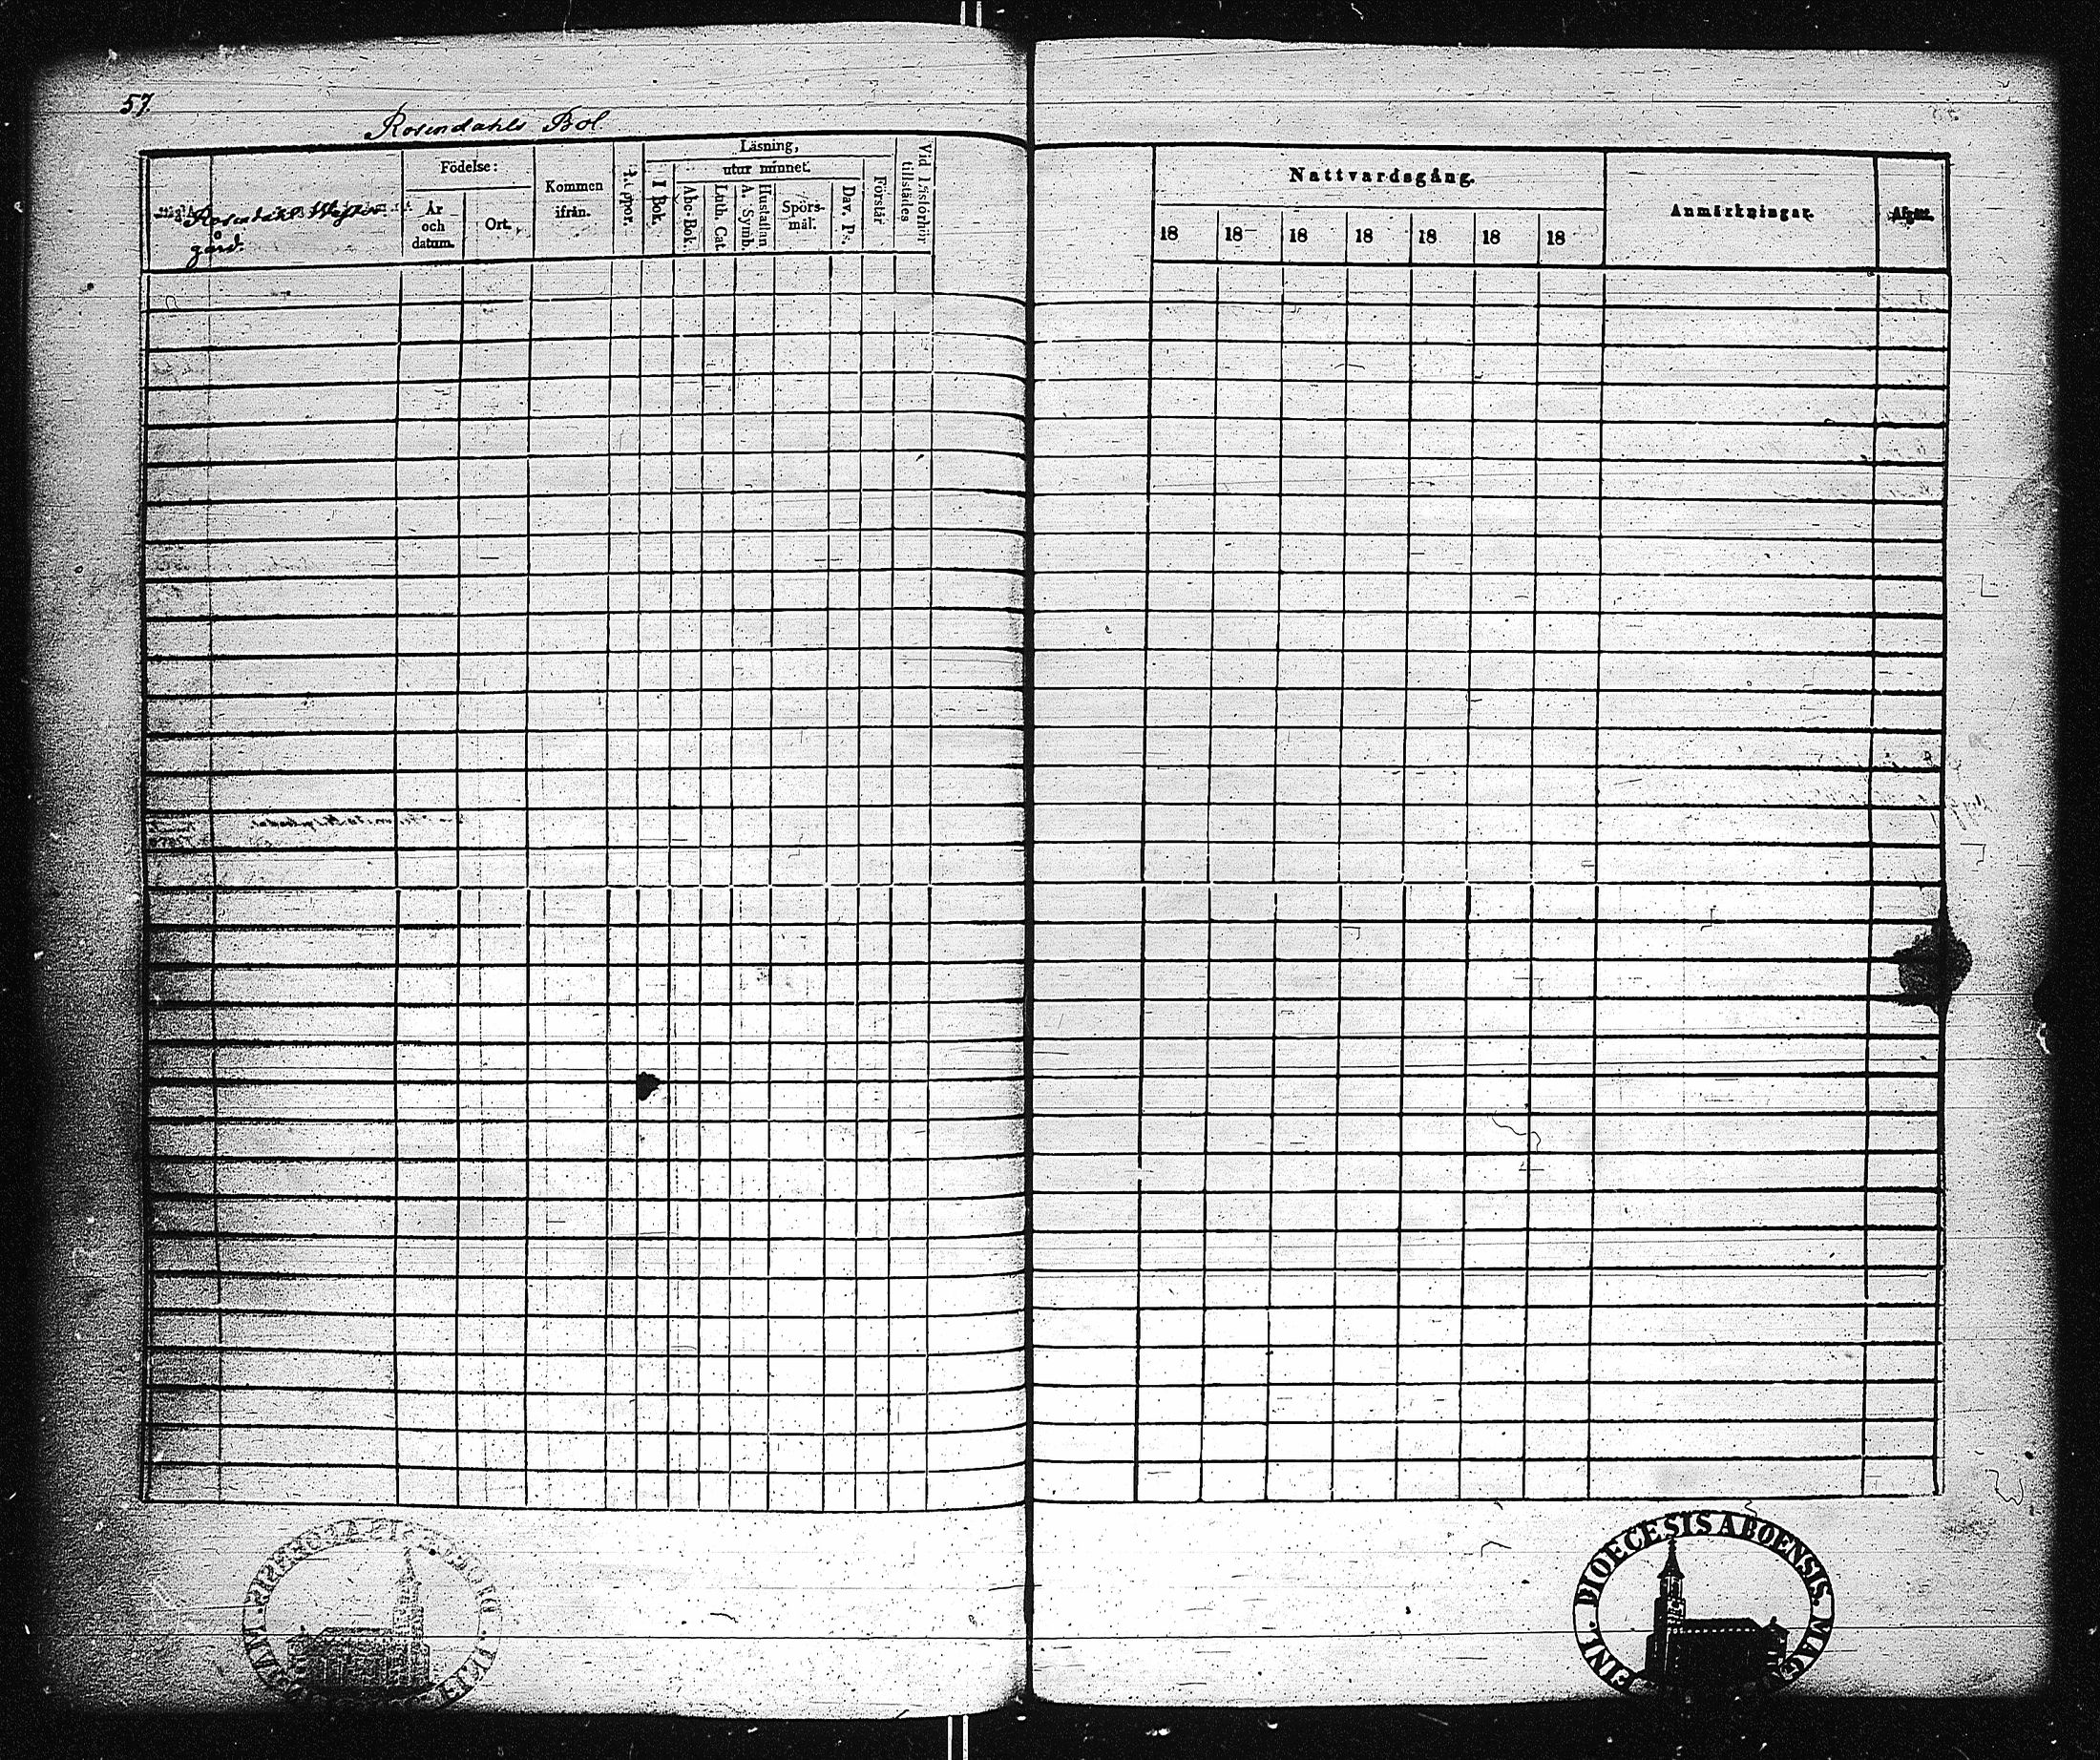 57.
Rosendahls Bol
Rosendahl Wester
gård.
Födelse:
År
och
datum.
Ort.
Kommen
ifrån.
Koppor.
Läsning,
I Bok.
utur minnet.
Abc-Bok.
Luth. Cat.
Hustaflan
A. Symb.
Spörs-
mål.
Dav. Ps.
Förstår
Vid Läsförhör
tillstädes
Nattvardsgång.
18 18 18 18 18 18 18
Anmärkningar.
Afgått.
FINL. DIOECESIS ABOENSIS. MAGN